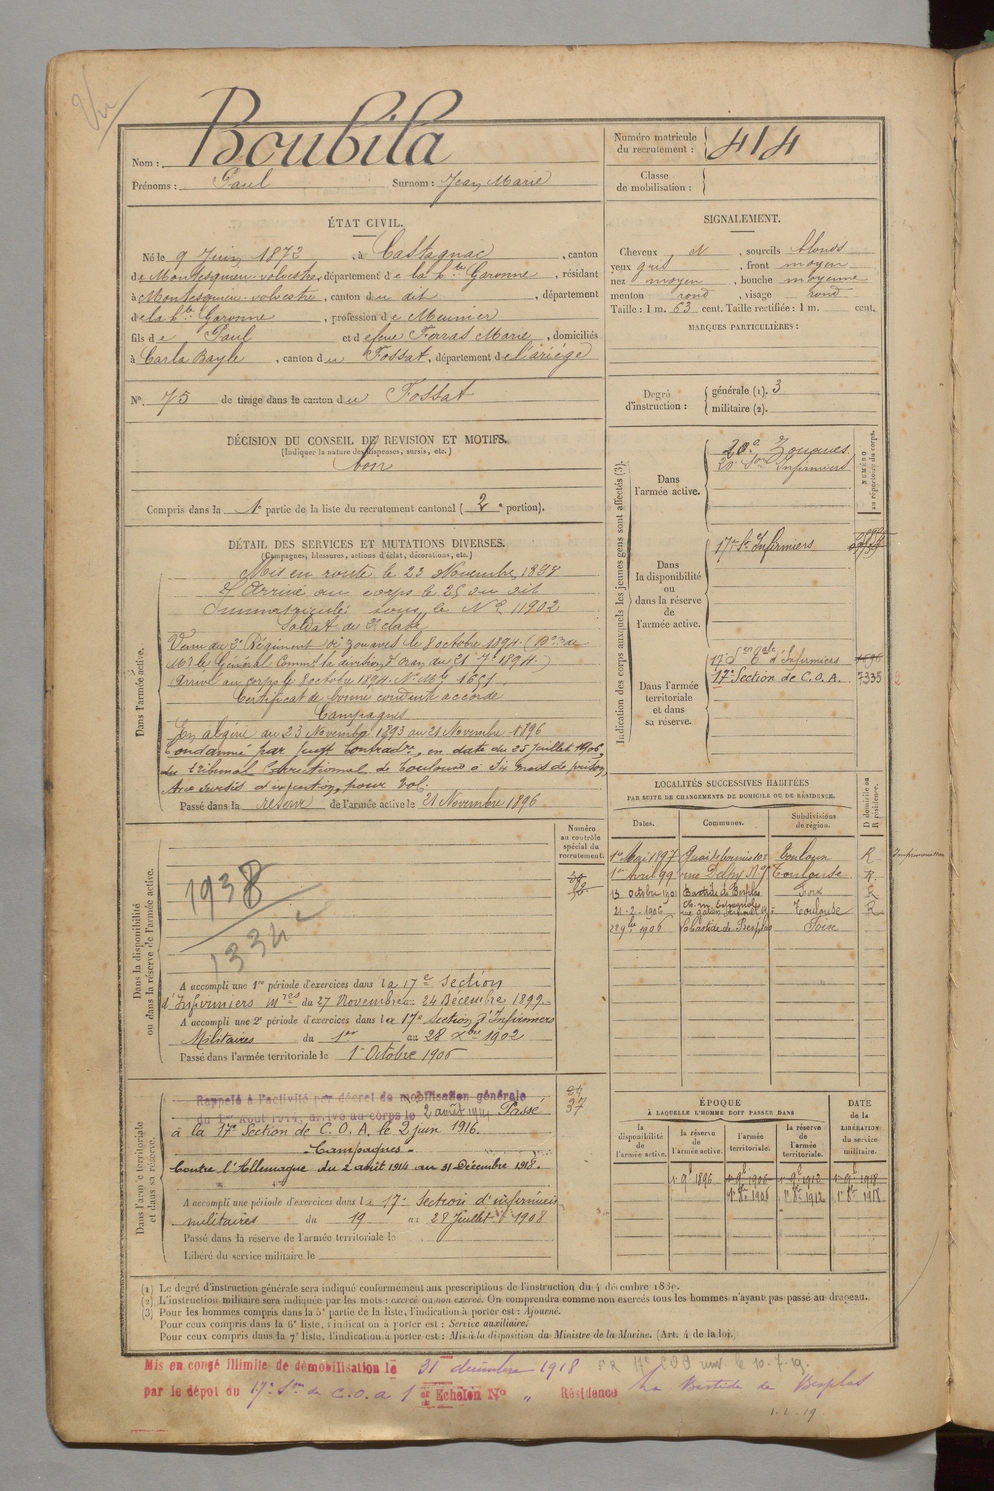 Vu
Nom : Boubila
Prénoms : Paul Surnom : Jean Marie
Numéro matricule du recrutement : 414
Classe de mobilisation :
ÉTAT CIVIL.
Né le 9 Juin 1872, à Castagnac, canton
de Montesquieu-volvestre, département de la hte Garonne, résidant
à Montesquieu-volvestre, canton du dit, département
de la hte Garonne, profession de Meunier
fils de Paul et de feue Ferras Marie, domiciliés
à Carla Bayle, canton du Fossat, département de l'ariège
N° 75 de tirage dans le canton du Fossat
SIGNALEMENT.
Cheveux N, sourcils blonds
yeux gris, front moyen
nez moyen, bouche moyenne
menton rond, visage rond
Taille : 1 m. 63 cent. Taille rectifiée : 1 m. cent.
MARQUES PARTICULIÈRES :
Degré d'instruction : générale (1). 3
militaire (2).
DÉCISION DU CONSEIL DE REVISION ET MOTIFS.
(Indiquer la nature des dispenses, sursis, etc.)
bon
Compris dans la 1e partie de la liste du recrutement cantonal (2e portion).
DÉTAIL DES SERVICES ET MUTATIONS DIVERSES.
(Campagnes, blessures, actions d'éclat, décorations, etc.)
Dans l'armée active.
Mis en route le 23 Novembre 1893
Arrivé au corps le 25 du dit
Immatriculé sous le N° 11902
Soldat de 2e classe
Venu du 2e Régiment de zouaves le 8 octobre 1894
Arrivé au corps le 8 octobre 1894. N° Mle 1651
Certificat de bonne conduite accordé
Campagnes
En algérie du 23 Novembre 1893 au 21 Novembre 1896
Condamné par jugt Contradre, en date du 25 Juillet 1906
du tribunal Correctionnel de Toulouse à six mois de prison,
Avec sursis d'exécution, pour vol.
Passé dans la réserve de l'armée active le 21 Novembre 1896
Indication des corps auxquels les jeunes gens sont affectés (3).
NUMÉRO au répertoire du corps.
Dans l'armée active.
2e Zouaves
20e Son Infirmiers
Dans la disponibilité ou dans la réserve de l'armée active.
17e Son Infirmiers
Dans l'armée territoriale et dans sa réserve.
17e Son Tale d'Infirmiers
17e Section de C.O.A. 7335 2
LOCALITÉS SUCCESSIVES HABITÉES
PAR SUITE DE CHANGEMENTS DE DOMICILE OU DE RÉSIDENCE.
Dates. Communes. Subdivisions de région. D domicile ou R résidence.
1er Mai 1897 Toulouse R
1er Avril 99 rue Toulouse R
13 Octobre 1901 Bastide de Besplas Foix R
21-2-1906 Toulouse R
1906 Labastide de Besplas Foix
Numéro au contrôle spécial du recrutement.
Dans la disponibilité ou dans la réserve de l'armée active.
1938
1334
A accompli une 1re période d'exercices dans la 17e Section
d'Infirmiers mres du 27 Novembre au 24 Décembre 1899
A accompli une 2e période d'exercices dans la 17e Section d'Infirmiers
Militaires du 1er au 28 Xbre 1902
Passé dans l'armée territoriale le 1er Octobre 1906
Dans l'armée territoriale et dans sa réserve.
Rappelé à l'activité par décret de mobilisation générale
du 1er Août 1914, arrivé au corps le 2 août 1914. Passé
à la 17e Section de C.O.A. le 2 juin 1916.
Campagnes
Contre l'Allemagne du 2 août 1914 au 31 Décembre 1918.
A accompli une période d'exercices dans la 17e Section d'infirmiers
militaires du 19 au 28 Juillet 1908
Passé dans la réserve de l'armée territoriale le
Libéré du service militaire le
37
ÉPOQUE
À LAQUELLE L'HOMME DOIT PASSER DANS
DATE de la LIBÉRATION du service militaire.
la disponibilité de l'armée active. la réserve de l'armée active. l'armée territoriale. la réserve de l'armée territoriale.
1er 9e 1896 1er 9e 1906 1er 9e 1912 1er 9e 1918
1er 8re 1906 1er 8re 1912 1er 8re 1918
(1) Le degré d'instruction générale sera indiqué conformément aux prescriptions de l'instruction du 4 décembre 1889.
(2) L'instruction militaire sera indiquée par les mots : exercé ou non exercé. On comprendra comme non exercés tous les hommes n'ayant pas passé au drapeau.
(3) Pour les hommes compris dans la 5e partie de la liste, l'indication à porter est : Ajourné.
Pour ceux compris dans la 6e liste, l'indication à porter est : Service auxiliaire.
Pour ceux compris dans la 7e liste, l'indication à porter est : Mis à la disposition du Ministre de la Marine. (Art. 4 de la loi.)
Mis en congé illimité de démobilisation le 31 décembre 1918
par le dépôt du 17e Son de C.O.A 1er Echelon N° " Résidence La Bastide de Besplas